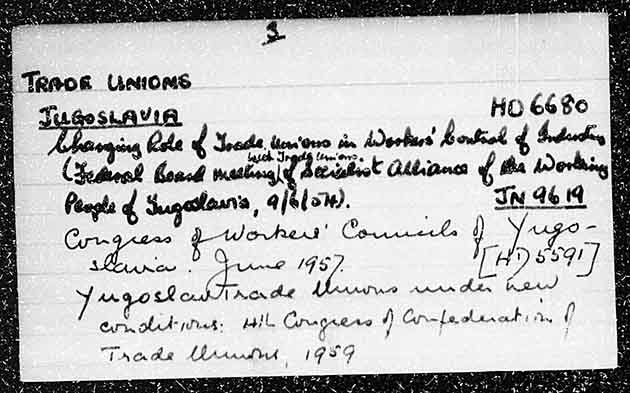 3
TRADE UNIONS
JUGOSLAVIA HD 6680
Changing Role of Trade Unions in Workers' Control of Industry
with Trade Unions.
(Federal Board meeting) of Socialist Alliance of the Working
People of Jugoslavia, 9/6/54). JN 9619
Congress of Workers' Councils of Yugo-
slavia. June 1957. [HD 5591]
Yugoslav Trade Unions under new
conditions: 4th Congress of Confederation of
Trade Unions, 1959